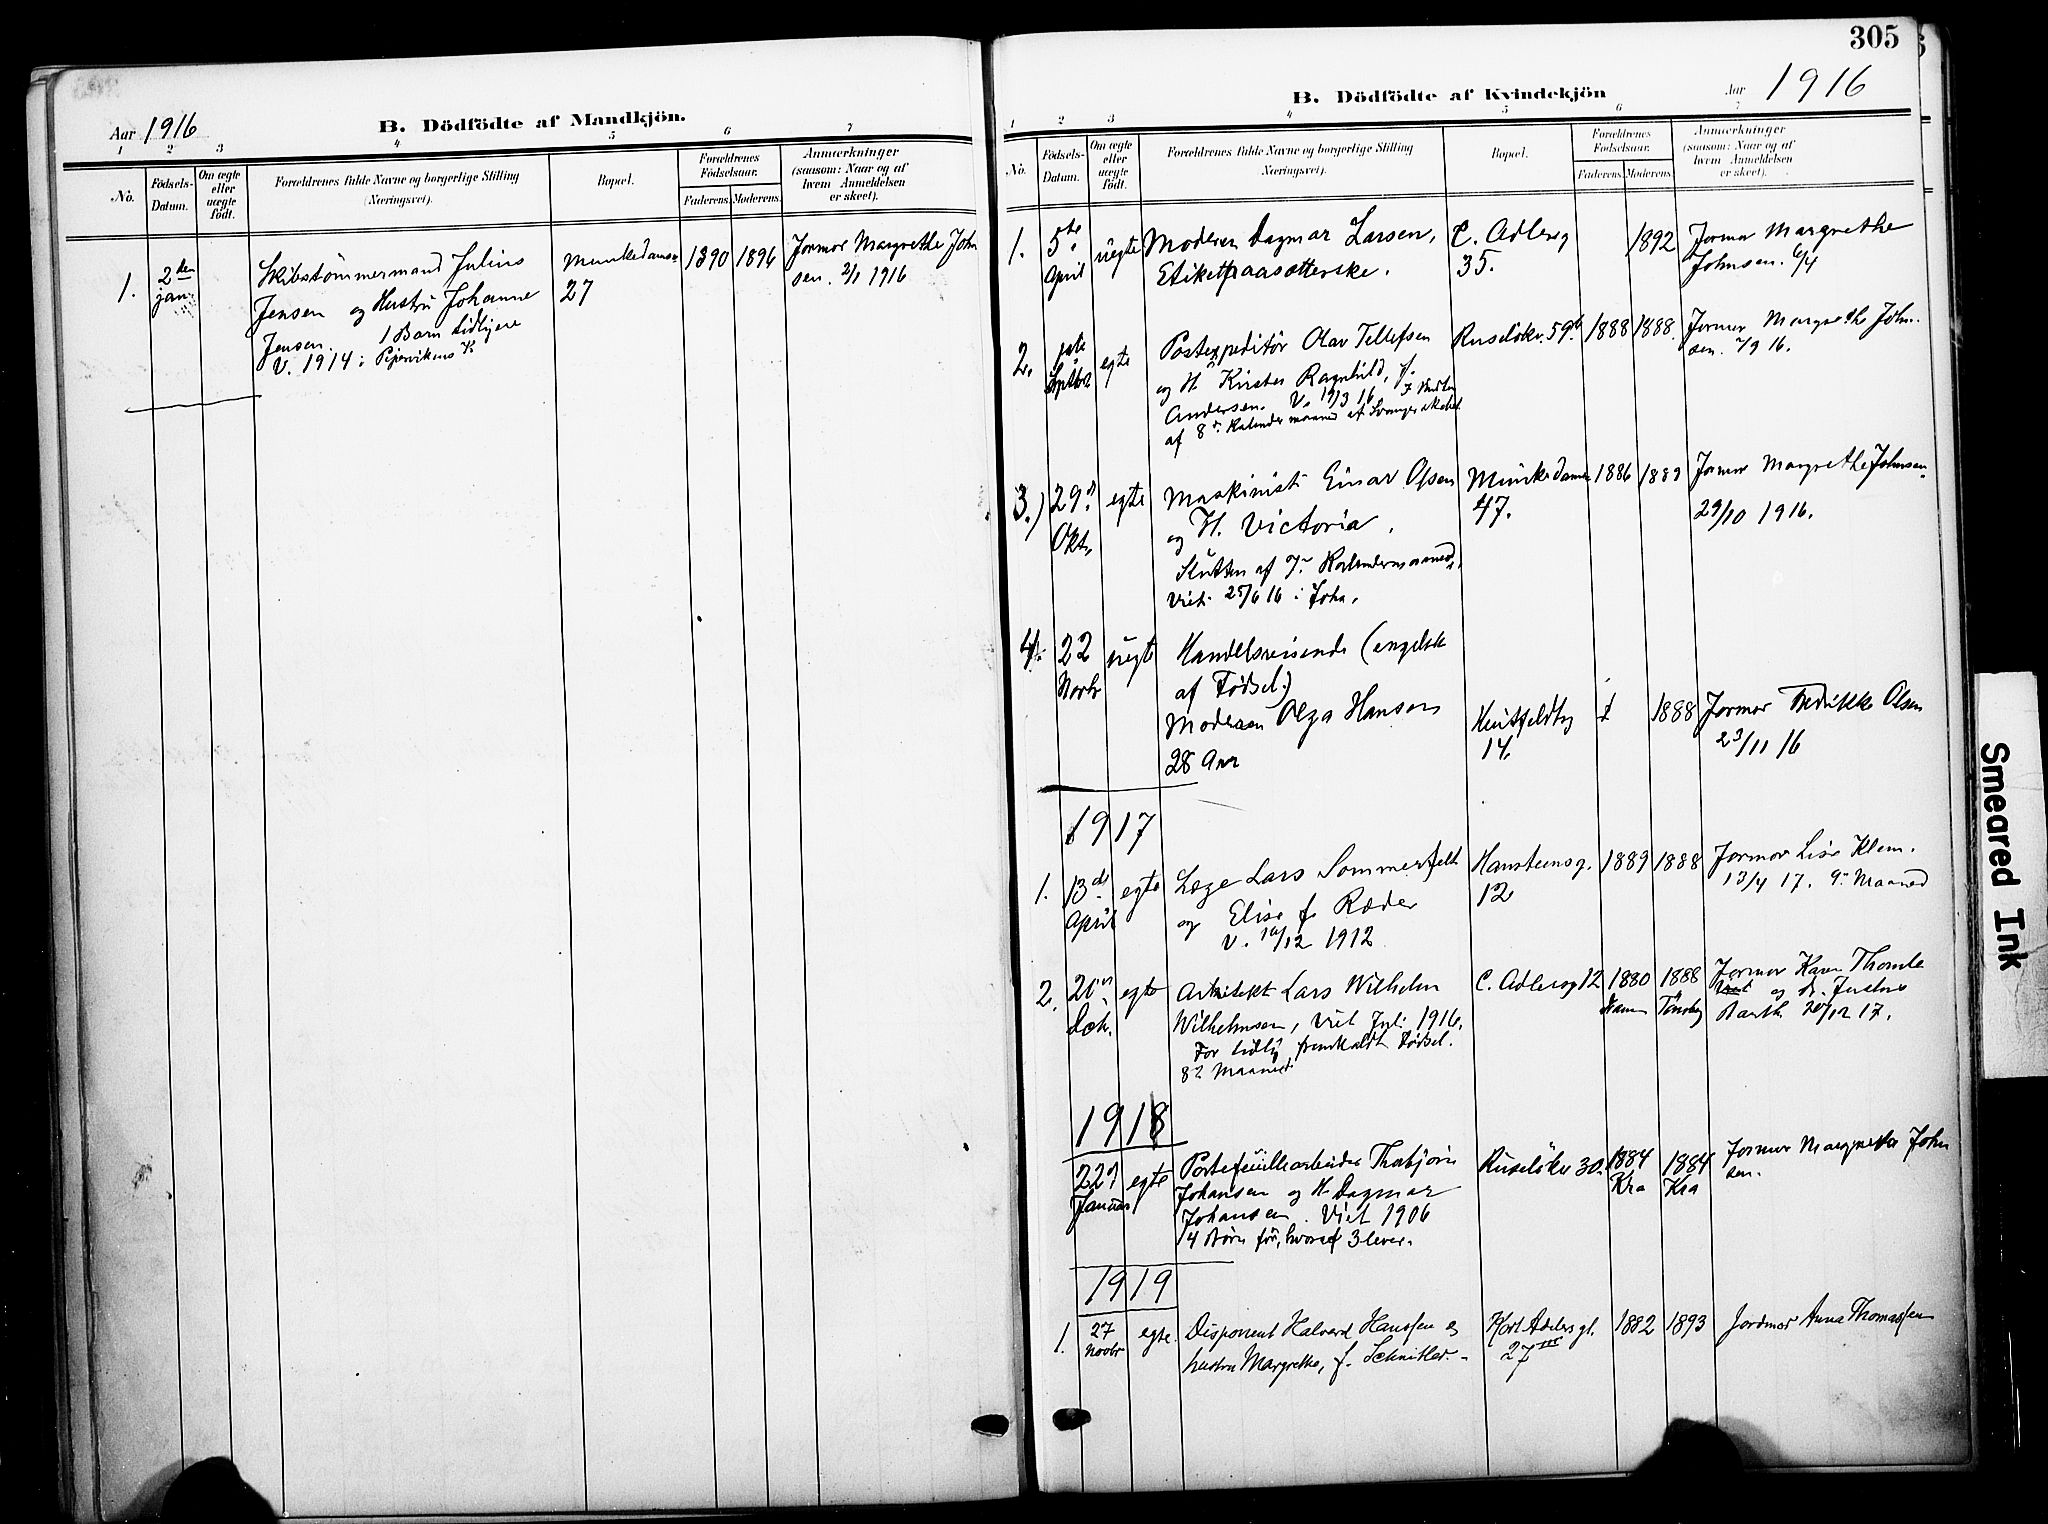 Aar 1916
B. Dödfödte af Mandkjön.
1 2 3 4 5 6 7
No.
Födsels-Datum.
Om ægte eller uægte födt.
Forældrenes fulde Navne og borgerlige Stilling (Næringsvei).
Bopæl.
Forældrenes Födselsaar.
Faderens. Moderens.
Anmærkninger (saasom: Naar og af hvem Anmeldelsen er skeet).
1. 2den jan.
Skibstømmermand Julius
Jensen og Hustru Johanne
Jensen. 1 Barn tidligere
V. 1914 i Pipervikens K
Munkedamsv
27
1890 1896
Jormor Margrethe John
sen. 2/1 1916
305
B. Dödfödte af Kvindekjön
Aar 1916
1 2 3 4 5 6 7
No.
Födsels-Datum.
Om ægte eller uægte födt.
Forældrenes fulde Navne og borgerlige Stilling (Næringsvei).
Bopæl.
Forældrenes Födselsaar.
Faderens. Moderens.
Anmærkninger (saasom: Naar og af hvem Anmeldelsen er skeet).
1. 5te April uegte
Moderen Dagmar Larsen,
Etiketpaasætterske.
C. Adlersg
35.
1892
Jormor Margrethe
Johnsen. 6/4
2. Septbr egte
Postexpeditør Olav Tellefsen
og H Kirsten Ragnhild, f.
Andersen. V. 19/3 16
af 8 Kalendermaaned af Svangerskabet
Ruseløkv. 59b
1888 1888.
Jormor Margrethe John-
sen. 1/9 16.
3.) 29d Okt. egte
Maskinist Einar Olsen
og H. Victoria.
Slutten af 7 Kalendermaaned.
Viet 25/6 16 i Joha.
Munkedamsv
47.
1886 1889
Jormor Margrethe Johnsen
29/10 1916.
4. 22 Novbr uegte
Handelsreisende (engelsk
af Fødsel.)
Moderen Olga Hansen
28 Aar
Huitfeldtsg
14.
1888
Jormor Fredrikke Olsen
23/11 16
1917
1. 13de April egte
Læge Lars Sommerfelt
og Elise f. Ræder
V. 10/12 1912
Hansteensg.
12
1889 1888
Jormor Lise Klem.
13/4 17. 9 Maaned
2. 20 Dcb. egte
Arkitekt Lars Wilhelm
Wilhelmsen, Viet Juli 1916.
For tidlig fremkaldt Fødsel.
8 Maaned
C. Adlersg 12
1880 1888
Hamar Tønsberg
Jormor Karen Thomle
og dr. Justus
Barth 20/12 17.
1918
22d Januar egte
Portefeuillearbeider Thorbjørn
Johansen og H Dagmar
Johansen. Viet 1906
4 Børn før, hvoraf 3 lever.
Ruseløkv 30.
1884 1884
Kra Kra
Jormor Margrethe John
sen.
1919
1. 27 Novbr egte.
Disponent Halvard Hanssen og
hustru Margrethe, f. Schnitler.
Kort Adlers gt.
27 III
1882 1893
Jordmor Anna Thomassen
Smeared Ink